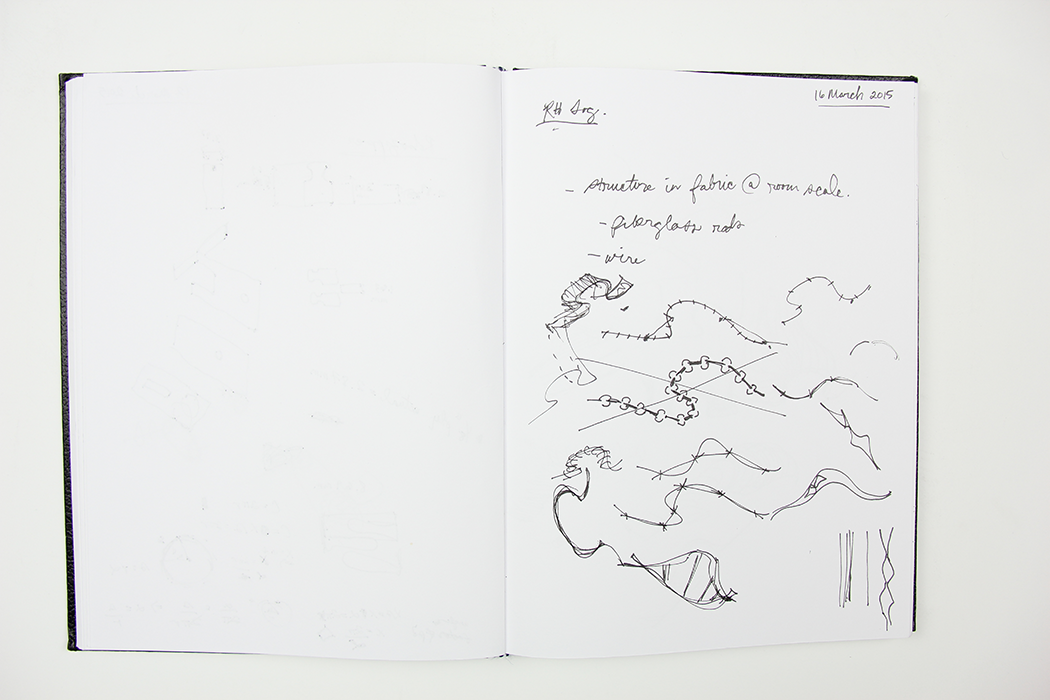 16 March 2015
RH
- structure in fabric @ room scale.
- fiberglass rods
- wire